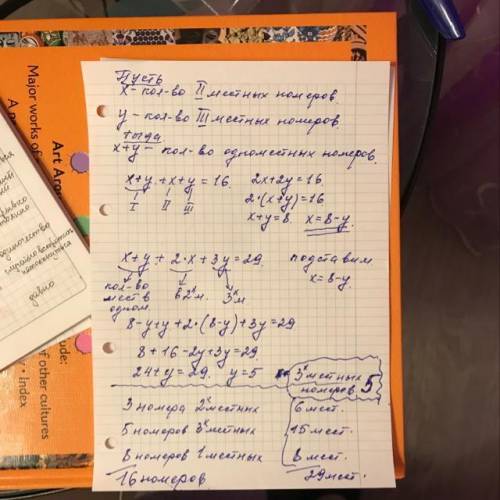 Пусть
x - кол-во II местных номеров.
y - кол-во III местных номеров.
тогда
x+y - кол-во одноместных номеров.
x+y + x + y = 16.
2x+2y=16
I II III
2·(x+y)=16
x+y=8. x=8-y.
x+y + 2·x + 3y = 29.
подставим
x=8-y.
кол-во мест в одном.
в 2х м.
3х м
8-y+y+2·(8-y)+3y=29
8+16-2y+3y=29.
24+y=29. y=5
3х местных номеров 5
3 номера 2х местных
6 мест.
5 номеров 3х местных
15 мест.
8 номеров 1 местных
8 мест.
16 номеров
29 мест.
Major works of
Art
of other cultures
Index